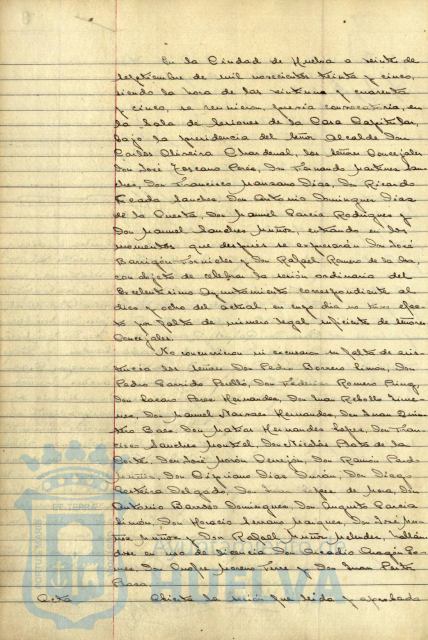 En la Ciudad de Huelva a veinte de
septiembre de mil novecientos treinta y cinco,
siendo la hora de las veintiuna y cuarenta
y cinco, se reunieron, previa convocatoria, en
la Sala de Sesiones de la Casa Capitular,
bajo la presidencia del Señor Alcalde Don
Carlos Oliveira Chardenal, los señores Concejales
Don José Toscano Pérez, Don Fernando Martínez San
chez, Don Francisco Manzano Díaz, Don Ricardo
Terada Sanchez, Don Antonio Dominguez Díaz
de la Cuesta, Don Manuel García Rodriguez y
Don Manuel Sanchez Muñoz, entrando en los
momentos que después se expresarán Don José
Barrigón Fornieles y Don Rafael Romero de la
con objeto de celebrar la sesión ordinaria del
Excelentísimo Ayuntamiento correspondiente al
diez y ocho del actual, en cuyo día no tuvo efec
to por falta de número legal suficiente de señores
Concejales.
No concurrieron ni excusaron su falta de asis
tencia los señores Don Pedro Borrero Limón, Don
Pedro Garrido Don Federico Romero
Don Perez Hernandez, Don Juan Rebollo Jime
nez, Don Manuel Narvaez Hernandez, Don Juan Quin
tero Baez, Don Matías Hernandez Lopez, Don Fran
cisco Sanchez Don Nicolás de la
Don José Morón Don Ramón
Don Cipriano Díaz Durán, Don Diego
Delgado, Don Juan Lopez de Mora, Don
Antonio Dominguez, Don Augusto García
Limón, Don Horacio Serrano Marquez, Don José Mu
ñoz Muñoz y Don Rafael Muñoz Melendez, hallán
dose en uso de licencia Don Arcadio Aragón
Don Onofre Moreno y Don Juan
Plaza.
Acta Abierta la sesión fue leída y aprobada
AYUNTAMIENTO DE
HUELVA